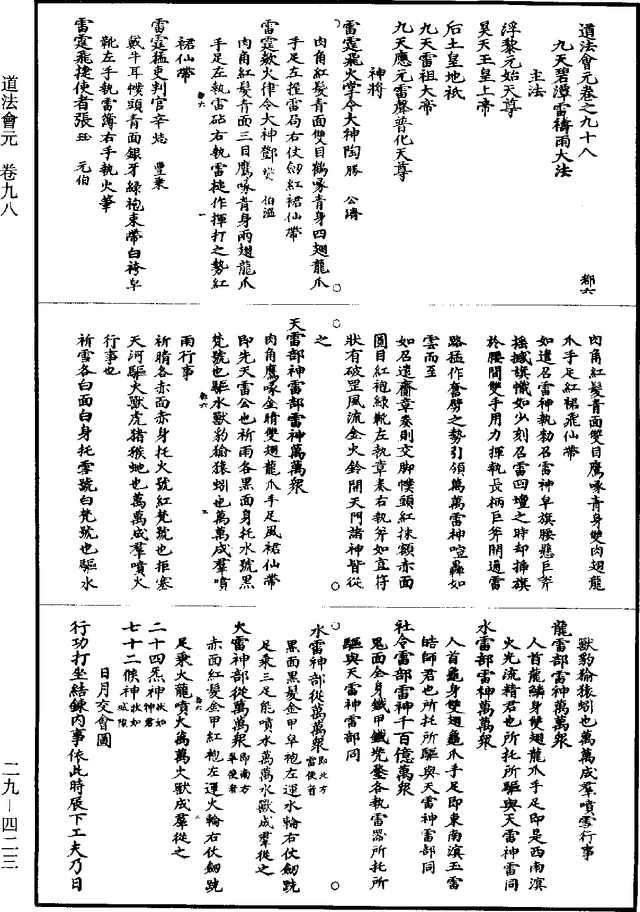 道法會元卷之九十八
鄰六
九天碧潭雷禱雨大法
主法
浮黎元始天尊
昊天玉皇上帝
后土皇地祇
九天雷祖大帝
九天應元雷聲普化天尊
神將
雷霆飛火掌令大神陶勝 公濟
肉角紅髮青面雙目鶴喙青身四翅龍爪
手足左捏雷局右仗劍紅裙仙帶
雷霆欻火律令大神鄧燮 伯溫
肉角紅髮青面三目鷹喙青身兩翅龍爪
手足左執雷鉆右執雷搥作揮打之勢紅
裙仙帶
雷霆猛吏判官辛 豐乘
戴牛耳幞頭青面銀牙綠袍束帶白袴皁
靴左手執雷簿右手執火筆
雷霆飛捷使者張玨 元伯
肉角紅髮青面雙目鷹喙青身雙肉翅龍
爪手足紅裙飛仙帶
如遣召雷神執勑召雷神皁旗腰懸巨斧
搖撼旗幟如少刻召雷回壇之時却捲旗
於腰間雙手用力揮執長柄巨斧開通雷
路猛作奮勞之勢引領萬萬雷神喧轟如
雲而至
如召遣齎章奏則交脚幞頭紅抹額赤面
圓目紅袍綠靴左執章奏右執斧如直符
狀有破罡風流金火鈴開天門諸神皆從
之
天雷部神雷部雷神萬萬眾
肉角鷹喙金睛雙翅龍爪手足風裙仙帶
即先天雷公也祈雨各黑面身托水號黑
梵號也驅水獸豹㺄猿蚓也萬萬成羣噴
雨行事
祈晴各赤面赤身托火號紅梵號也拒塞
天河驅火獸虎猪猴蛇也萬萬成羣噴火
行事也
祈雪各白面白身托雪號白梵號也驅水
獸豹㺄猿蚓也萬萬成羣噴雪行事
龍雷部雷神萬萬眾
人首龍鱗身雙翅龍爪手足即是西南溟
火光流精君也所托所驅與天雷神雷同
水雷部雷神萬萬眾
人首龜身雙翅龜爪手足即東南溟玉雷
皓師君也所托所驅與天雷神雷部同
社令雷部雷神千百億萬眾
鬼面全身鐵甲鐵兜鍪各執雷器所托所
驅與天雷神雷部同
水雷神部從萬萬眾即北方雷使者
黑面黑髮金甲皁袍左運水輪右仗劍跣
足乘三足能噴水萬萬水獸成羣從之
火雷神部從萬萬眾即南方畢使者
赤面紅髮金甲紅袍左運火輪右仗劍跣
足乘火龍噴火萬萬火獸成羣從之
二十四炁神狀如神君
七十二候神狀如
日月交會圖
行功打坐結鍊内事依此時辰下工夫乃日
道法會元 卷九八
二九－四二三